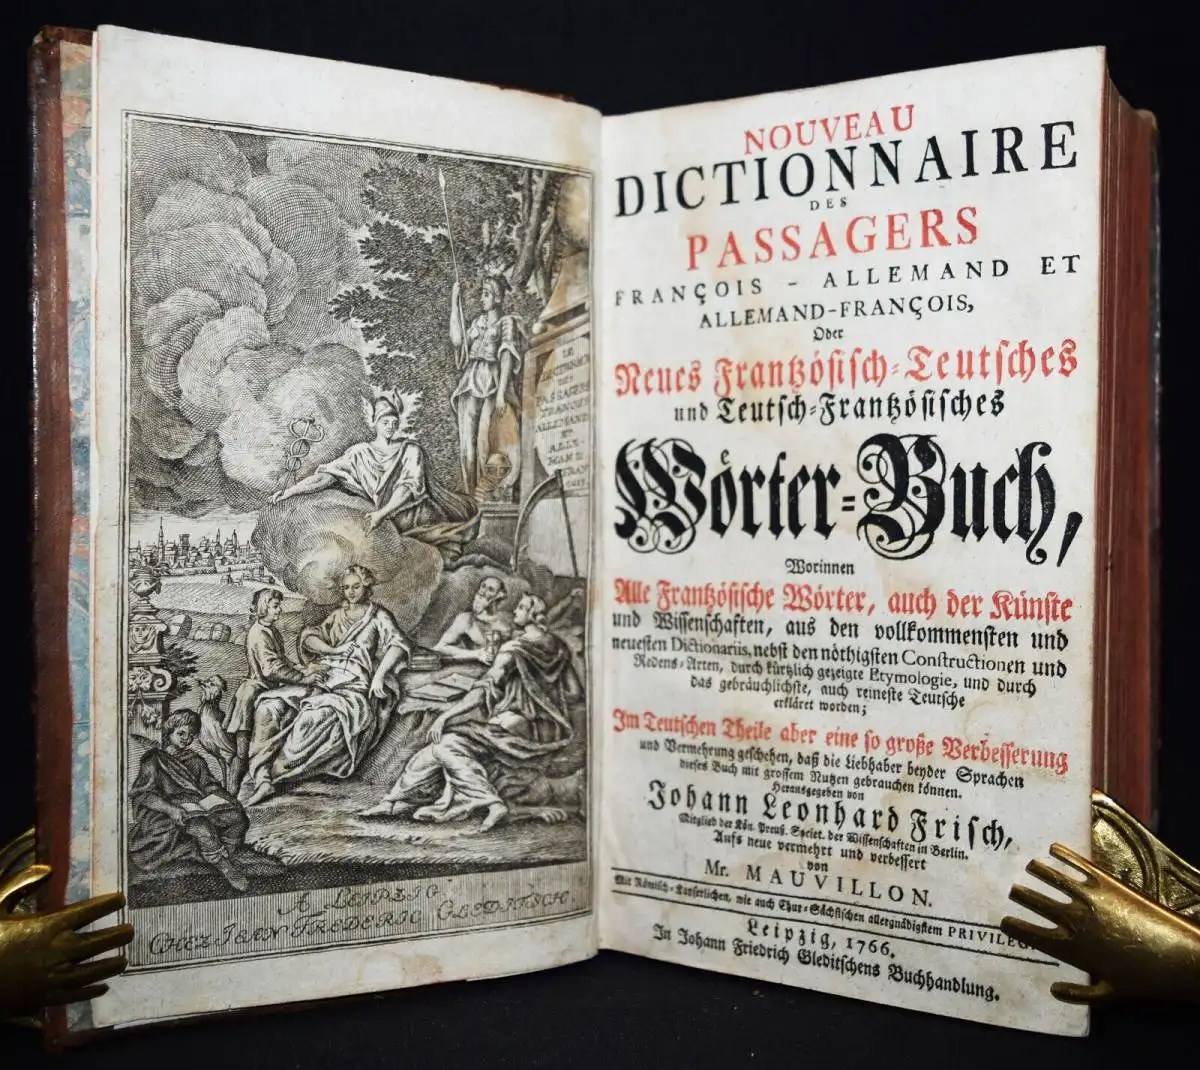 LE
DICTIONNAIRE
DES
PASSAGERS
FRANÇOIS
ALLEMAND
ET
ALLE-
MAND
FRAN
ÇOIS
A LEIPZIG
CHEZ JEAN FREDERIC GLEDITSCH.
NOUVEAU
DICTIONNAIRE
DES
PASSAGERS
FRANÇOIS - ALLEMAND ET
ALLEMAND-FRANÇOIS,
Oder
Neues Frantzösisch-Teutsches
und Teutsch-Frantzösisches
Wörter-Buch,
Worinnen
Alle Frantzösische Wörter, auch der Künste
und Wissenschaften, aus den vollkommensten und
neuesten Dictionariis, nebst den nöthigsten Constructionen und
Redens-Arten, durch kürtzlich gezeigte Etymologie, und durch
das gebräuchlichste, auch reineste Teutsche
erkläret worden;
Im Teutschen Theile aber eine so große Verbesserung
und Vermehrung geschehen, daß die Liebhaber beyder Sprachen
dieses Buch mit grossem Nutzen gebrauchen können.
Herausgegeben von
Johann Leonhard Frisch,
Mitglied der Kön. Preuß. Societ. der Wissenschaften in Berlin.
Aufs neue vermehrt und verbessert
von
Mr. MAUVILLON.
Mit Römisch-Kayserlichen, wie auch Chur-Sächsischen allergnädigstem PRIVILEG
Leipzig, 1766.
In Johann Friedrich Gleditschens Buchhandlung.